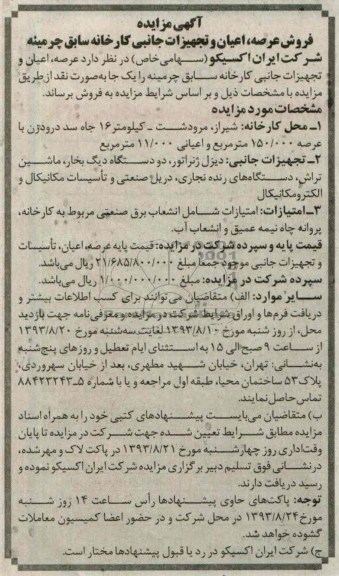 آگهی مزایده
فروش عرصه، اعیان و تجهیزات جانبی کارخانه سابق چرمینه
شرکت ایران اکسیکو (سهامی خاص) در نظر دارد عرصه، اعیان و
تجهیزات جانبی کارخانه سابق چرمینه را یک جا به‌صورت نقد از طریق
مزایده با مشخصات ذیل و بر اساس شرایط مزایده به فروش برساند.
مشخصات مورد مزایده
۱ـ محل کارخانه: شیراز، مرودشت ـ کیلومتر ۱۶ جاه سد درودزن با
عرصه ۱۵۰/۰۰۰ مترمربع و اعیانی ۱۱/۰۰۰ مترمربع
۲ـ تجهیزات جانبی: دیزل ژنراتور، دو دستگاه دیگ بخار، ماشین
تراش، دستگاه‌های رنده نجاری، دریل صنعتی و تأسیسات مکانیکال و
الکترومکانیکال
۳ـ امتیازات: امتیازات شامل انشعاب برق صنعتی مربوط به کارخانه،
پروانه چاه نیمه عمیق و انشعاب آب.
قیمت پایه و سپرده شرکت در مزایده: قیمت پایه عرصه، اعیان، تأسیسات
و تجهیزات جانبی موجود جمعاً مبلغ ۲۱/۶۸۵/۸۰۰/۰۰۰ ریال می‌باشد.
سپرده شرکت در مزایده: مبلغ ۱/۰۰۰/۰۰۰/۰۰۰ ریال می‌باشد.
سایر موارد: الف) متقاضیان می‌توانند برای کسب اطلاعات بیشتر و
دریافت فرم‌ها و اوراق شرایط شرکت در مزایده و معرفی‌نامه جهت بازدید
محل، از روز شنبه مورخ ۱۳۹۳/۸/۱۰ لغایت سه‌شنبه مورخ ۱۳۹۳/۸/۲۰
از ساعت ۹ صبح الی ۱۵ به استثنای ایام تعطیل و روزهای پنج‌شنبه
به‌نشانی: تهران، خیابان شهید مطهری، بعد از خیابان سهروردی،
پلاک ۵۳ ساختمان محیا، طبقه اول مراجعه و یا با شماره ۵ـ۸۸۴۲۳۲۴۳
تماس حاصل نمایند.
ب) متقاضیان می‌بایست پیشنهادهای کتبی خود را به همراه اسناد
مزایده مطابق شرایط تعیین شده جهت شرکت در مزایده تا پایان
وقت اداری روز چهارشنبه مورخ ۱۳۹۳/۸/۲۱ در پاکت لاک و مهر شده،
در نشانی فوق تسلیم دبیر برگزاری مزایده شرکت ایران اکسیکو نموده و
رسید دریافت دارند.
توجه: پاکت‌های حاوی پیشنهادها رأس ساعت ۱۴ روز شنبه
مورخ ۱۳۹۳/۸/۲۴ در محل شرکت و در حضور اعضا کمیسیون معاملات
گشوده خواهد شد.
ج) شرکت ایران اکسیکو در رد یا قبول پیشنهادها مختار است.